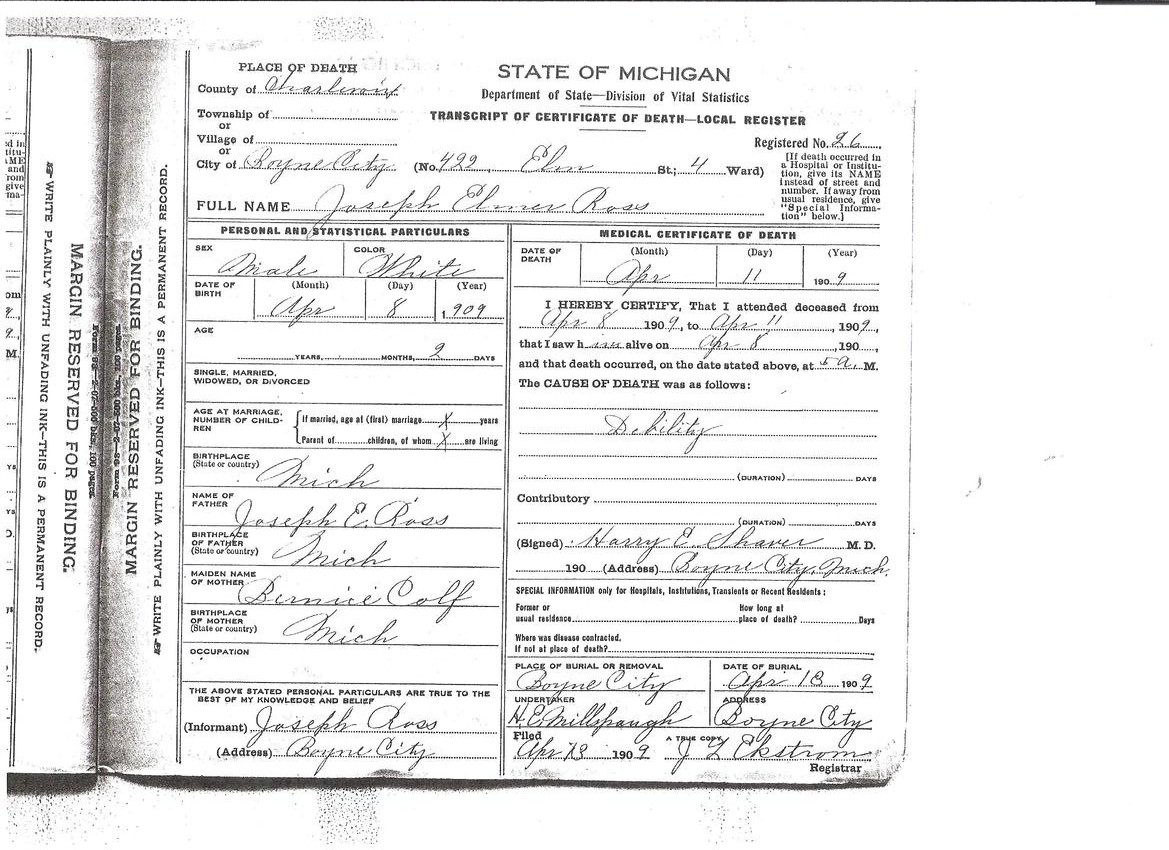 PLACE OF DEATH
County of Charlevoix
Township of
or
Village of
or
City of Boyne City (No. 422, Elm St.; 4 Ward)
STATE OF MICHIGAN
Department of State—Division of Vital Statistics
TRANSCRIPT OF CERTIFICATE OF DEATH—LOCAL REGISTER
Registered No. 26
[If death occurred in
a Hospital or Institu-
tion, give its NAME
instead of street and
number. If away from
usual residence, give
"Special Informa-
tion" below.]
FULL NAME Joseph Elmer Ross
PERSONAL AND STATISTICAL PARTICULARS
SEX Male COLOR White
DATE OF BIRTH (Month) (Day) (Year)
Apr 8, 1909
AGE
YEARS, MONTHS, 2 DAYS
SINGLE, MARRIED,
WIDOWED, OR DIVORCED
AGE AT MARRIAGE,
NUMBER OF CHILD-
REN
If married, age at (first) marriage X years
Parent of children, of whom X are living
BIRTHPLACE
(State or country) Mich
NAME OF
FATHER Joseph E. Ross
BIRTHPLACE
OF FATHER
(State or country) Mich
MAIDEN NAME
OF MOTHER Bernice Colf
BIRTHPLACE
OF MOTHER
(State or country) Mich
OCCUPATION
THE ABOVE STATED PERSONAL PARTICULARS ARE TRUE TO THE
BEST OF MY KNOWLEDGE AND BELIEF
(Informant) Joseph Ross
(Address) Boyne City
MEDICAL CERTIFICATE OF DEATH
DATE OF
DEATH (Month) (Day) (Year)
Apr 11 1909
I HEREBY CERTIFY, That I attended deceased from
Apr 8 1909, to Apr 11, 1909,
that I saw h im alive on Apr 8, 190 ,
and that death occurred, on the date stated above, at 5 a. M.
The CAUSE OF DEATH was as follows:
Debility
(DURATION) DAYS
Contributory
(DURATION) DAYS
(Signed) Harry E. Shaver M. D.
190 (Address) Boyne City, Mich.
SPECIAL INFORMATION only for Hospitals, Institutions, Transients or Recent Residents:
Former or How long at
usual residence place of death? Days
Where was disease contracted,
If not at place of death?
PLACE OF BURIAL OR REMOVAL DATE OF BURIAL
Boyne City Apr 13 1909
UNDERTAKER ADDRESS
H. E. Millspaugh Boyne City
Filed A TRUE COPY
Apr 13 1909 J L Ekstrom
Registrar
WRITE PLAINLY WITH UNFADING INK—THIS IS A PERMANENT RECORD.
MARGIN RESERVED FOR BINDING.
MARGIN RESERVED FOR BINDING.
WRITE PLAINLY WITH UNFADING INK—THIS IS A PERMANENT RECORD.